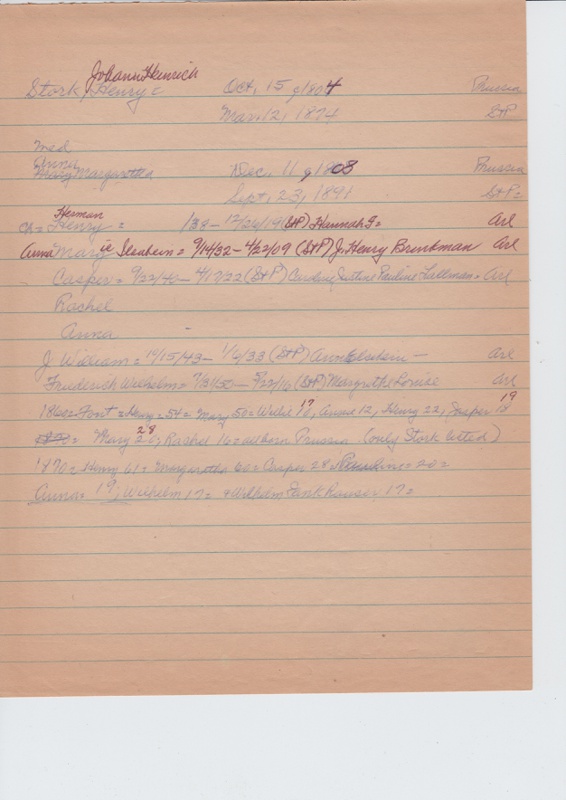 Johann Heinrich
Stork, Henry = Oct. 15, 1804 Prussia
Mar. 12, 1874 StP
Med
Anna
Margaretha Dec. 11, 1808 Prussia
Sept. 23, 1891 StP =
Herman
Ch = Henry = /38 - 12/24/19 (StP) Hannah F = Arl
Anna Marie Ilsabein = 9/14/32 - 4/22/09 (StP) J. Henry Brinkman Arl
Casper = 9/22/40 - 4/17/22 (StP) Caroline Justine Pauline Lallman = Arl
Rachel
Anna -
J William = 10/15/43 - 1/6/33 (StP) Ann Elsabein - Arl
Friederich Wilhelm = 7/31/50 - 5/22/16 (StP) Margrethe Louise Arl
1860 = Font = Henry = 54 = Mary 50 = Willie 10, Anna 12, Henry 22, Casper 18
17 19
28
= Mary 20, Rachel 16 = all born Prussia (only Stork listed)
1870 = Henry 61 = Margaretha 60 = Casper 28 = 20 =
Anna = 19, Wilhelm 17 = + Wilhelm Fankhauser, 17 =